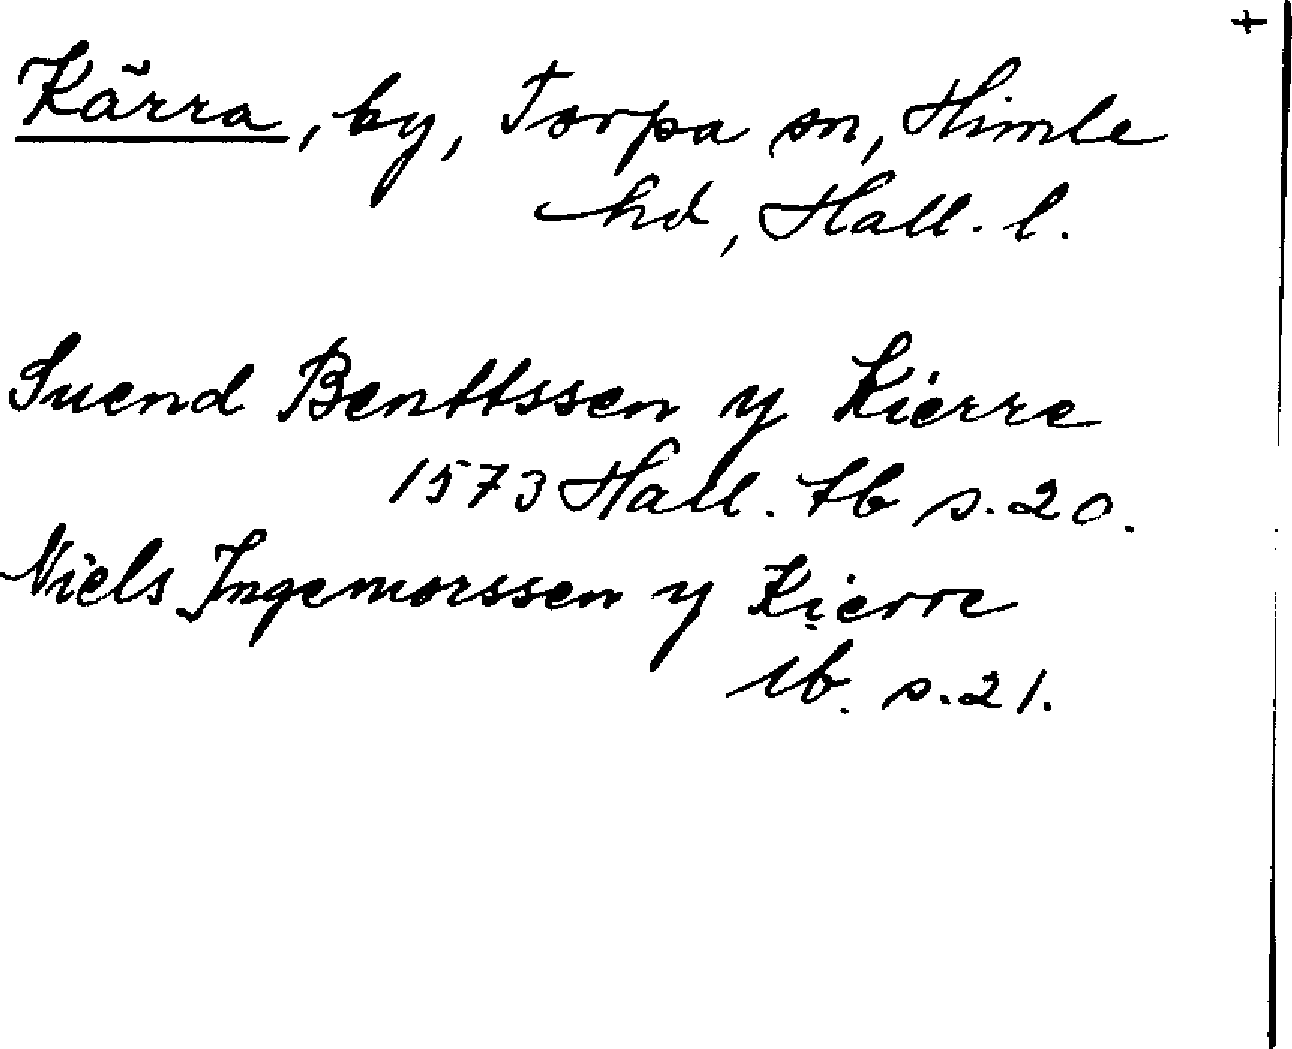 +
Kärra, by, Torpa sn, Himle
hd, Hall. l.
Suend Benttssen y Kierre
1573 Hall. tb s. 20.
Niels Ingemorssen y Kierre
ib. s. 21.